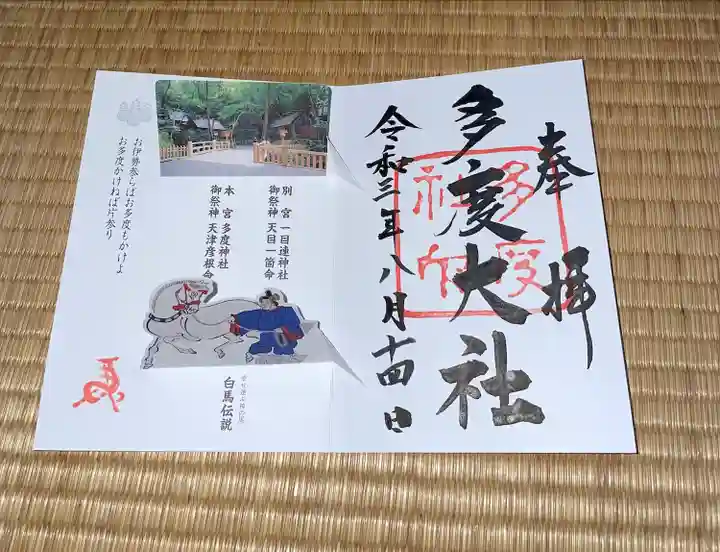 奉拝
多度大社
多度大社
令和三年八月十四日
別宮 一目連神社
御祭神 天目一箇命
本宮 多度神社
御祭神 天津彦根命
白馬伝説
お伊勢参らばお多度もかけよ
お多度かけねば片参り